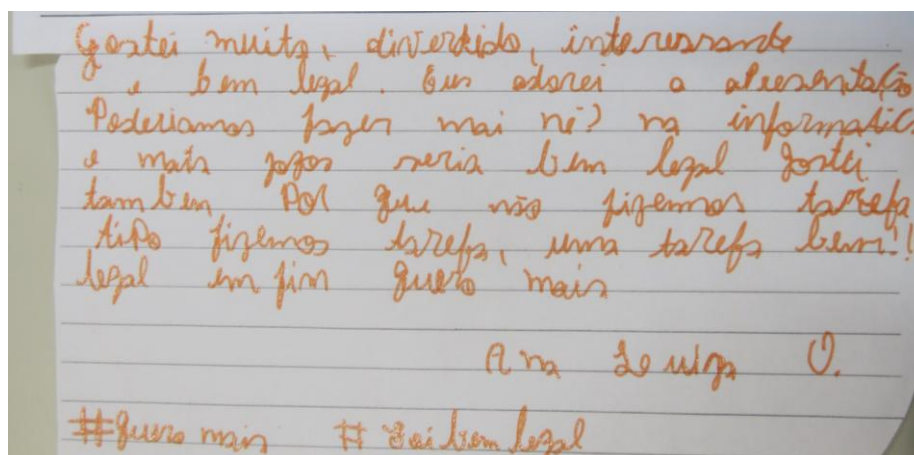 Gostei muito, divertido, interessante
e bem legal. Eus adorei a apresentação
Poderiamos fazer mai né? na informatic
e mais jogos seria bem legal gostei
tambem Por que não fizemos tarefa
tiPo fizemos tarefa, uma tarefa bem!!
legal em fim quero mais
Ana Leuiza O.
#quero mais # Foi bem legal